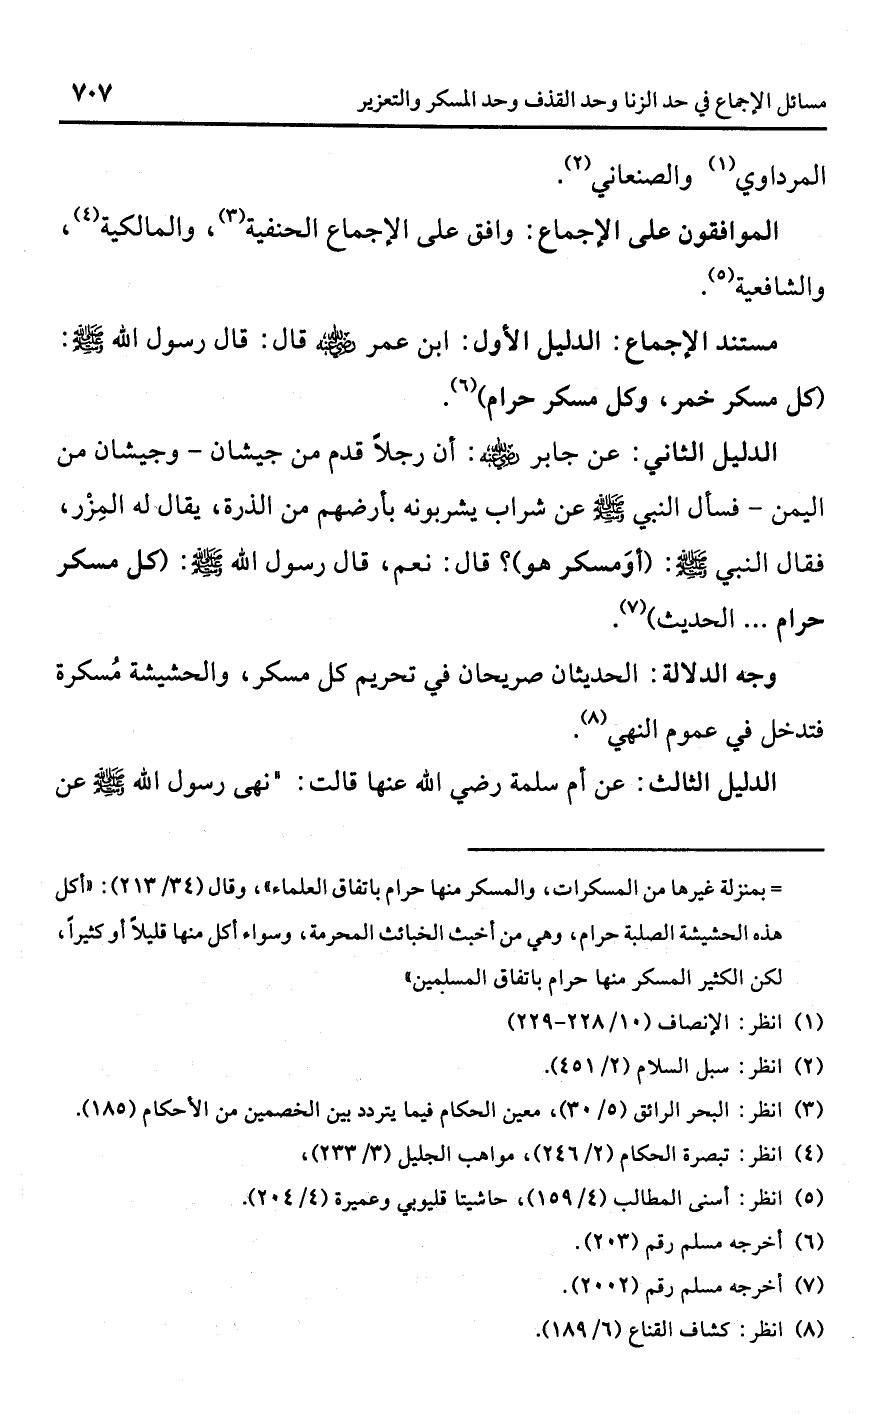 مسائل الإجماع في حد الزنا وحد القذف وحد المسكر والتعزير ٧٠٧
المرداوي(١) والصنعاني(٢).
الموافقون على الإجماع: وافق على الإجماع الحنفية(٣)، والمالكية(٤)،
والشافعية(٥).
مستند الإجماع: الدليل الأول: ابن عمر رضي الله عنه قال: قال رسول الله ﷺ:
(كل مسكر خمر، وكل مسكر حرام)(٦).
الدليل الثاني: عن جابر رضي الله عنه: أن رجلاً قدم من جيشان – وجيشان من
اليمن – فسأل النبي ﷺ عن شراب يشربونه بأرضهم من الذرة، يقال له المِزْر،
فقال النبي ﷺ: (أوَمسكر هو)؟ قال: نعم، قال رسول الله ﷺ: (كل مسكر
حرام ... الحديث)(٧).
وجه الدلالة: الحديثان صريحان في تحريم كل مسكر، والحشيشة مُسكرة
فتدخل في عموم النهي(٨).
الدليل الثالث: عن أم سلمة رضي الله عنها قالت: "نهى رسول الله ﷺ عن
= بمنزلة غيرها من المسكرات، والمسكر منها حرام باتفاق العلماء»، وقال (٣٤/ ٢١٣): «أكل
هذه الحشيشة الصلبة حرام، وهي من أخبث الخبائث المحرمة، وسواء أكل منها قليلاً أو كثيراً،
لكن الكثير المسكر منها حرام باتفاق المسلمين»
(١) انظر: الإنصاف (١٠/ ٢٢٨-٢٢٩)
(٢) انظر: سبل السلام (٢/ ٤٥١).
(٣) انظر: البحر الرائق (٥/ ٣٠)، معين الحكام فيما يتردد بين الخصمين من الأحكام (١٨٥).
(٤) انظر: تبصرة الحكام (٢/ ٢٤٦)، مواهب الجليل (٣/ ٢٣٣)،
(٥) انظر: أسنى المطالب (٤/ ١٥٩)، حاشيتا قليوبي وعميرة (٤/ ٢٠٤).
(٦) أخرجه مسلم رقم (٢٠٣).
(٧) أخرجه مسلم رقم (٢٠٠٢).
(٨) انظر: كشاف القناع (٦/ ١٨٩).